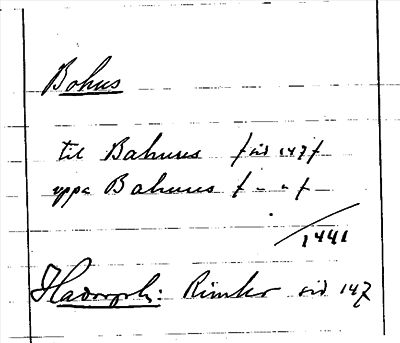 Bohus
til Bahuus /sid 147/
uppa Bahuus / - " - /
/1441
Hadorph: Rimkr sid 147